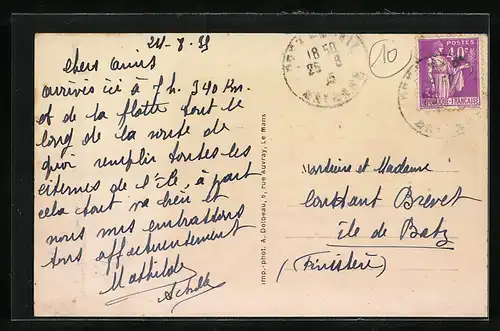 24-8-35
chers amis
arrivés ici à 7 h. 340 Km.
et de la flotte tout le
long de la route de
quoi remplir toutes les
citernes de l'île, à part
cela tout va bien et
nous vous embrassons
tous affectueusement
Mathilde
Achille
Imp.-phot. A. Dolbeau, 9, rue Auvray, Le Mans
18 50
25 8
35
MAYENNE
10
POSTES
40c
REPUBLIQUE FRANÇAISE
Monsieur et Madame
Constant Brevet
île de Batz
(Finistère)